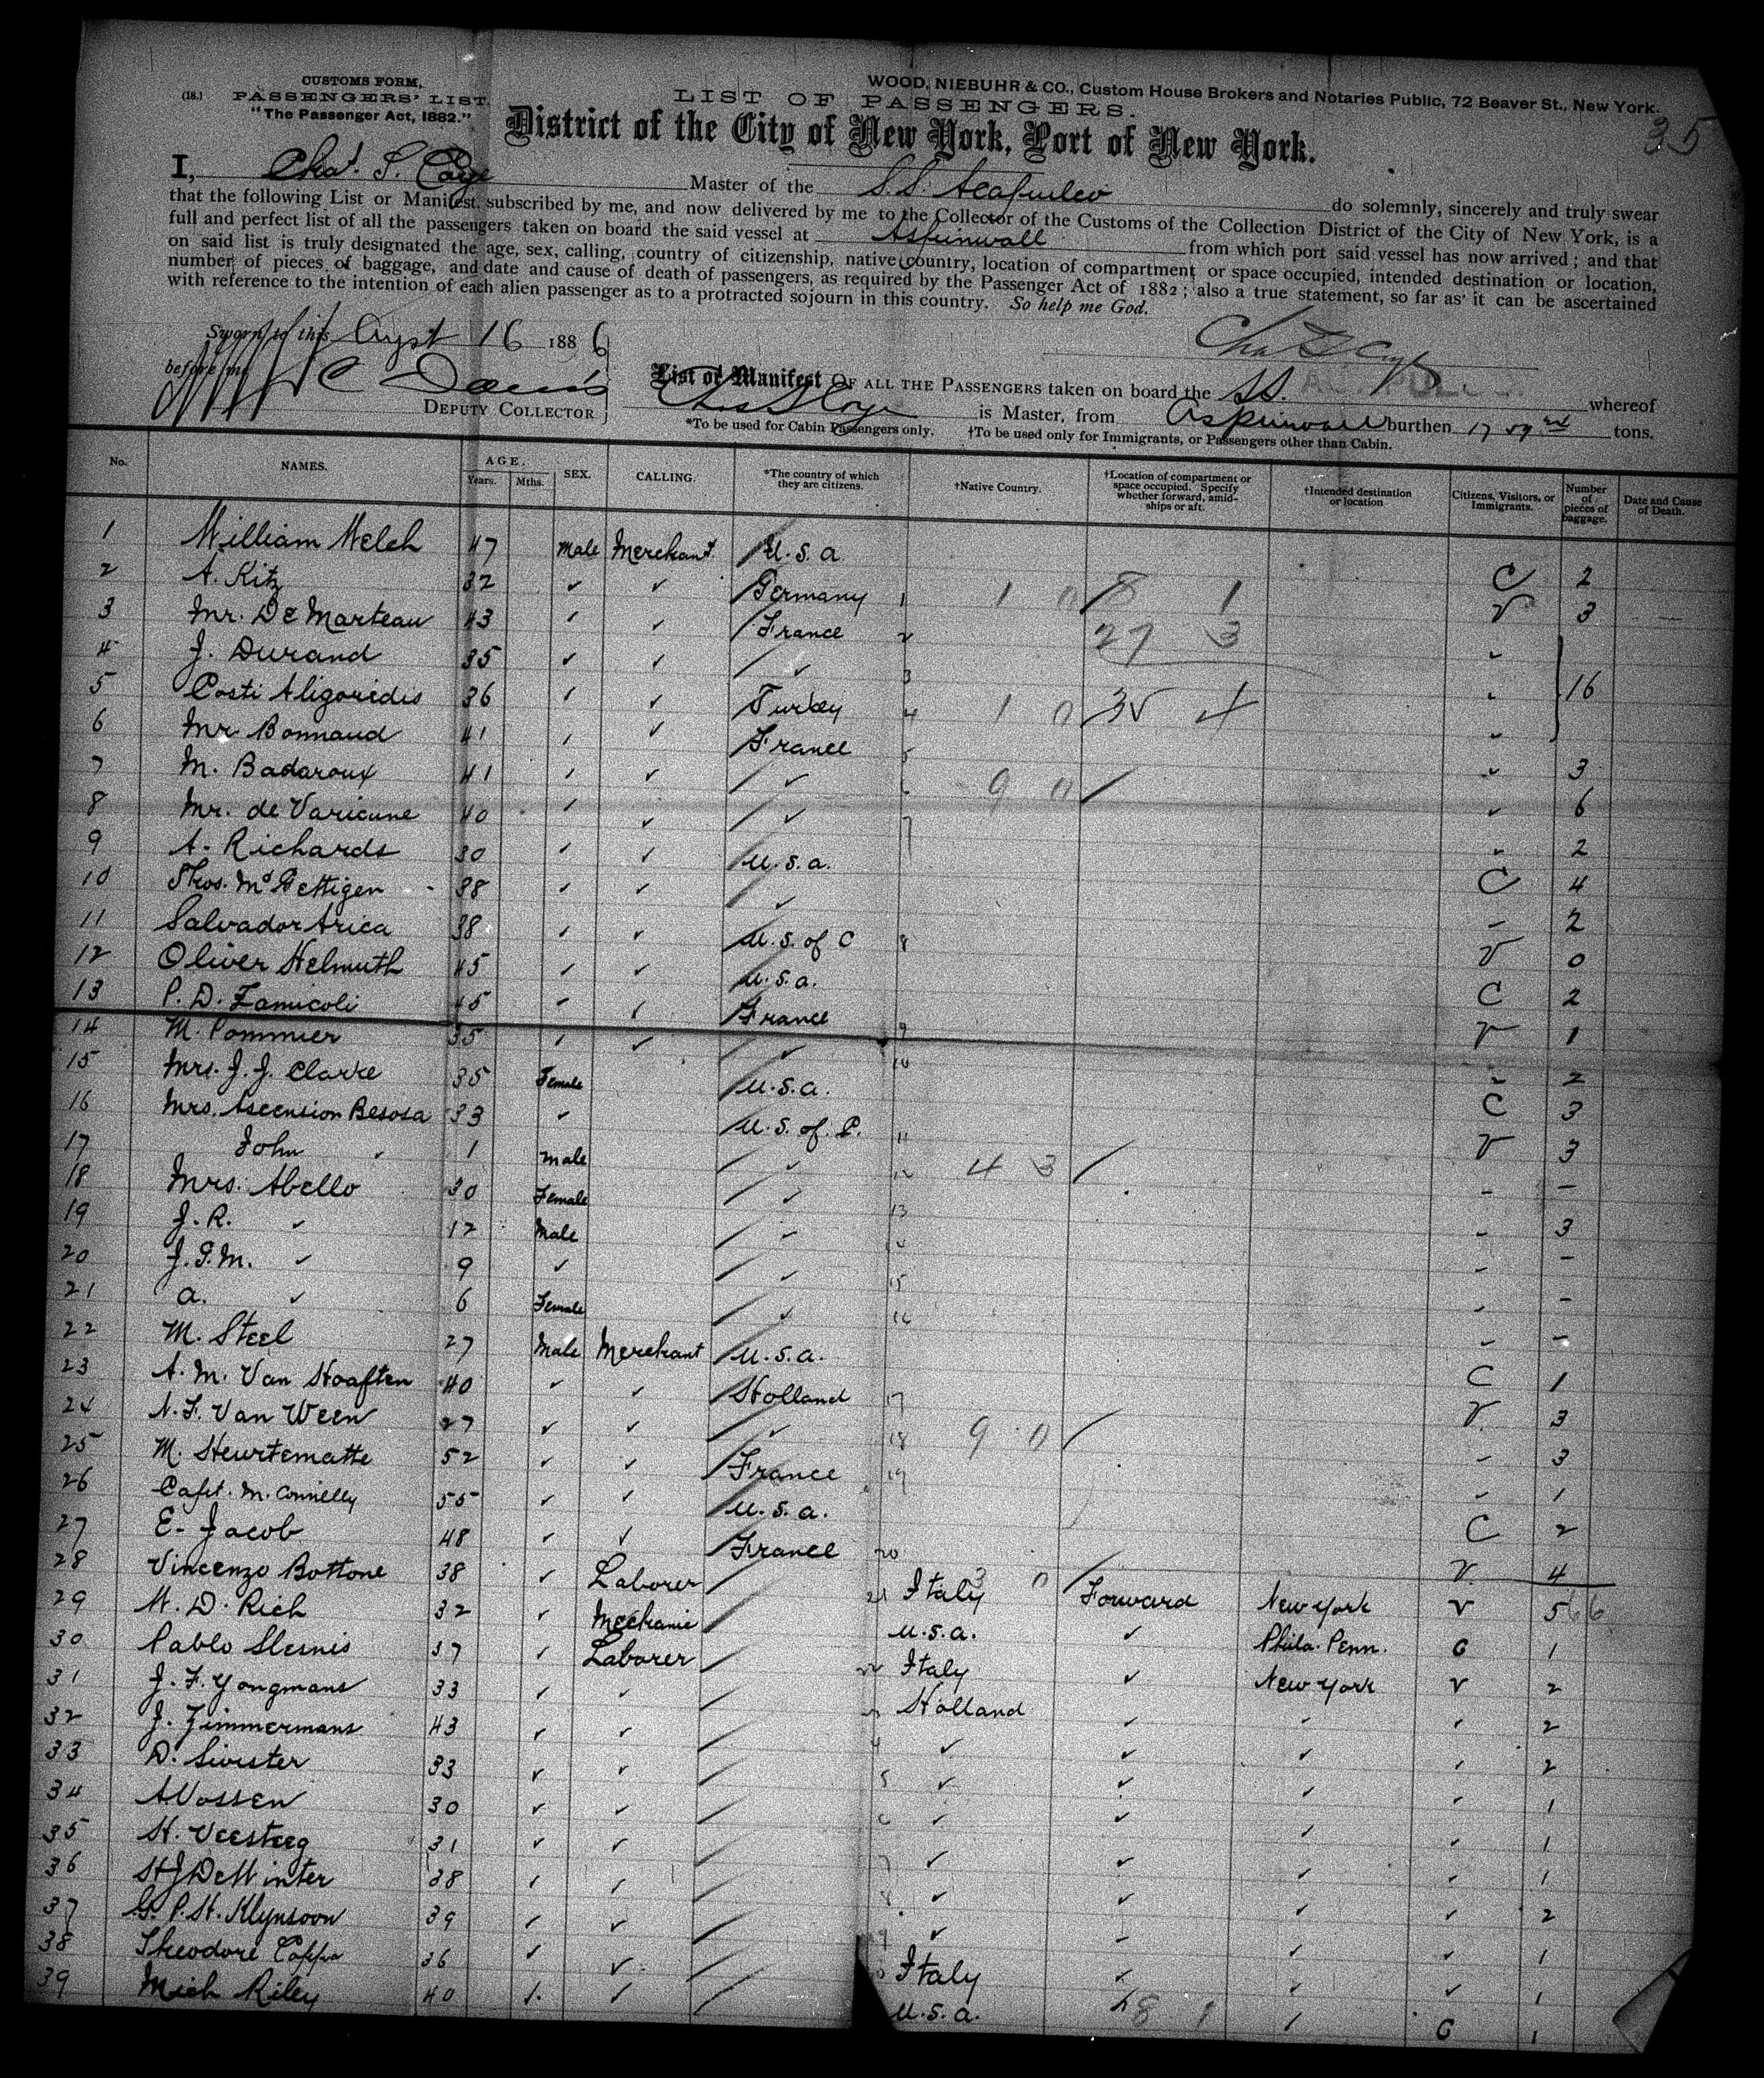 CUSTOMS FORM,
(18.) PASSENGERS' LIST.
"The Passenger Act, 1882."
WOOD, NIEBUHR & CO., Custom House Brokers and Notaries Public, 72 Beaver St., New York.
35
LIST OF PASSENGERS.
District of the City of New York, Port of New York.
I, Chas. S. Master of the S.S. Acapulco do solemnly, sincerely and truly swear
that the following List or Manifest, subscribed by me, and now delivered by me to the Collector of the Customs of the Collection District of the City of New York, is a
full and perfect list of all the passengers taken on board the said vessel at Aspinwall from which port said vessel has now arrived; and that
on said list is truly designated the age, sex, calling, country of citizenship, native country, location of compartment or space occupied, intended destination or location,
number of pieces of baggage, and date and cause of death of passengers, as required by the Passenger Act of 1882; also a true statement, so far as it can be ascertained
with reference to the intention of each alien passenger as to a protracted sojourn in this country. So help me God.
Sworn to this Augst 16 1886
before me C Davis
DEPUTY COLLECTOR
List or Manifest OF ALL THE PASSENGERS taken on board the SS. whereof
is Master, from Aspinwall burthen tons.
*To be used for Cabin Passengers only. †To be used only for Immigrants, or Passengers other than Cabin.
No. NAMES. AGE. Years. Mths. SEX. CALLING. *The country of which they are citizens. †Native Country. †Location of compartment or space occupied. Specify whether forward, amidships or aft. †Intended destination or location Citizens, Visitors, or Immigrants. Number of pieces of baggage. Date and Cause of Death.
1 William Welch 47 Male Merchant U.S.a. C 2
2 A. Kitz 32 ✓ ✓ Germany 1 V 3
3 Mr. De Marteau 43 ✓ ✓ France 2 ✓
4 J. Durand 35 ✓ ✓ ✓ 3 ✓ 16
5 Costi Aligoridis 36 ✓ ✓ Turkey 4 ✓
6 Mr Bonnaud 41 ✓ ✓ France 5 ✓ 3
7 M. Badaroux 41 ✓ ✓ ✓ 6 ✓ 6
8 Mr. de Varicune 40 ✓ ✓ ✓ 7 ✓ 2
9 A. Richards 30 ✓ ✓ U.S.a. C 4
10 Thos. McGettigen 38 ✓ ✓ ✓ ✓ 2
11 Salvador Arica 38 ✓ ✓ U.S. of C 8 V 0
12 Oliver Helmuth 45 ✓ ✓ U.S.a. C 2
13 P. D. Zamicoli 45 ✓ ✓ France 9 V 1
14 M. Pommier 35 ✓ ✓ ✓ 10 ✓ 2
15 Mrs. J. J. Clarke 35 Female U.S.a. C 3
16 Mrs. Ascension Besosa 33 ✓ U.S. of C. 11 V 3
17 John ✓ 1 Male ✓ 12 ✓ –
18 Mrs. Abello 30 Female ✓ 13 ✓ 3
19 J. R. ✓ 12 Male ✓ 14 ✓ –
20 J. G. M. ✓ 9 ✓ ✓ 15 ✓ –
21 A. ✓ 6 Female ✓ 16 ✓ –
22 M. Steel 27 Male Merchant U.S.a. C 1
23 A. M. Van Haaften 40 ✓ ✓ Holland 17 V 3
24 N. F. Van Ween 27 ✓ ✓ ✓ 18 ✓ 3
25 M. Heurtematte 52 ✓ ✓ France 19 ✓ 1
26 Capt. M. Connelly 55 ✓ ✓ U.S.a. C 2
27 E. Jacob 48 ✓ ✓ France 20 V 4
28 Vincenzo Bottone 38 ✓ Laborer 21 Italy Forward New York V 5
29 W. D. Rich 32 ✓ Mechanic U.S.a. ✓ Phila. Penn. C 1
30 Pablo Slesnis 37 ✓ Laborer 22 Italy ✓ New York V 2
31 J. F. Yongmans 33 ✓ ✓ Holland ✓ ✓ ✓ 2
32 J. Zimmermans 43 ✓ ✓ 4 ✓ ✓ ✓ ✓ 2
33 D. Sivister 33 ✓ ✓ 5 ✓ ✓ ✓ ✓ 1
34 A. Vossen 30 ✓ ✓ 6 ✓ ✓ ✓ ✓ 1
35 H. Veesteeg 31 ✓ ✓ 7 ✓ ✓ ✓ ✓ 1
36 H J De Winter 38 ✓ ✓ 8 ✓ ✓ ✓ ✓ 2
37 G. P. H. Klynsoon 39 ✓ ✓ 9 ✓ ✓ ✓ ✓ 1
38 Theodore Coppa 36 ✓ ✓ Italy ✓ ✓ ✓ 1
39 Mich Riley 40 ✓ ✓ U.S.a. ✓ ✓ C 1